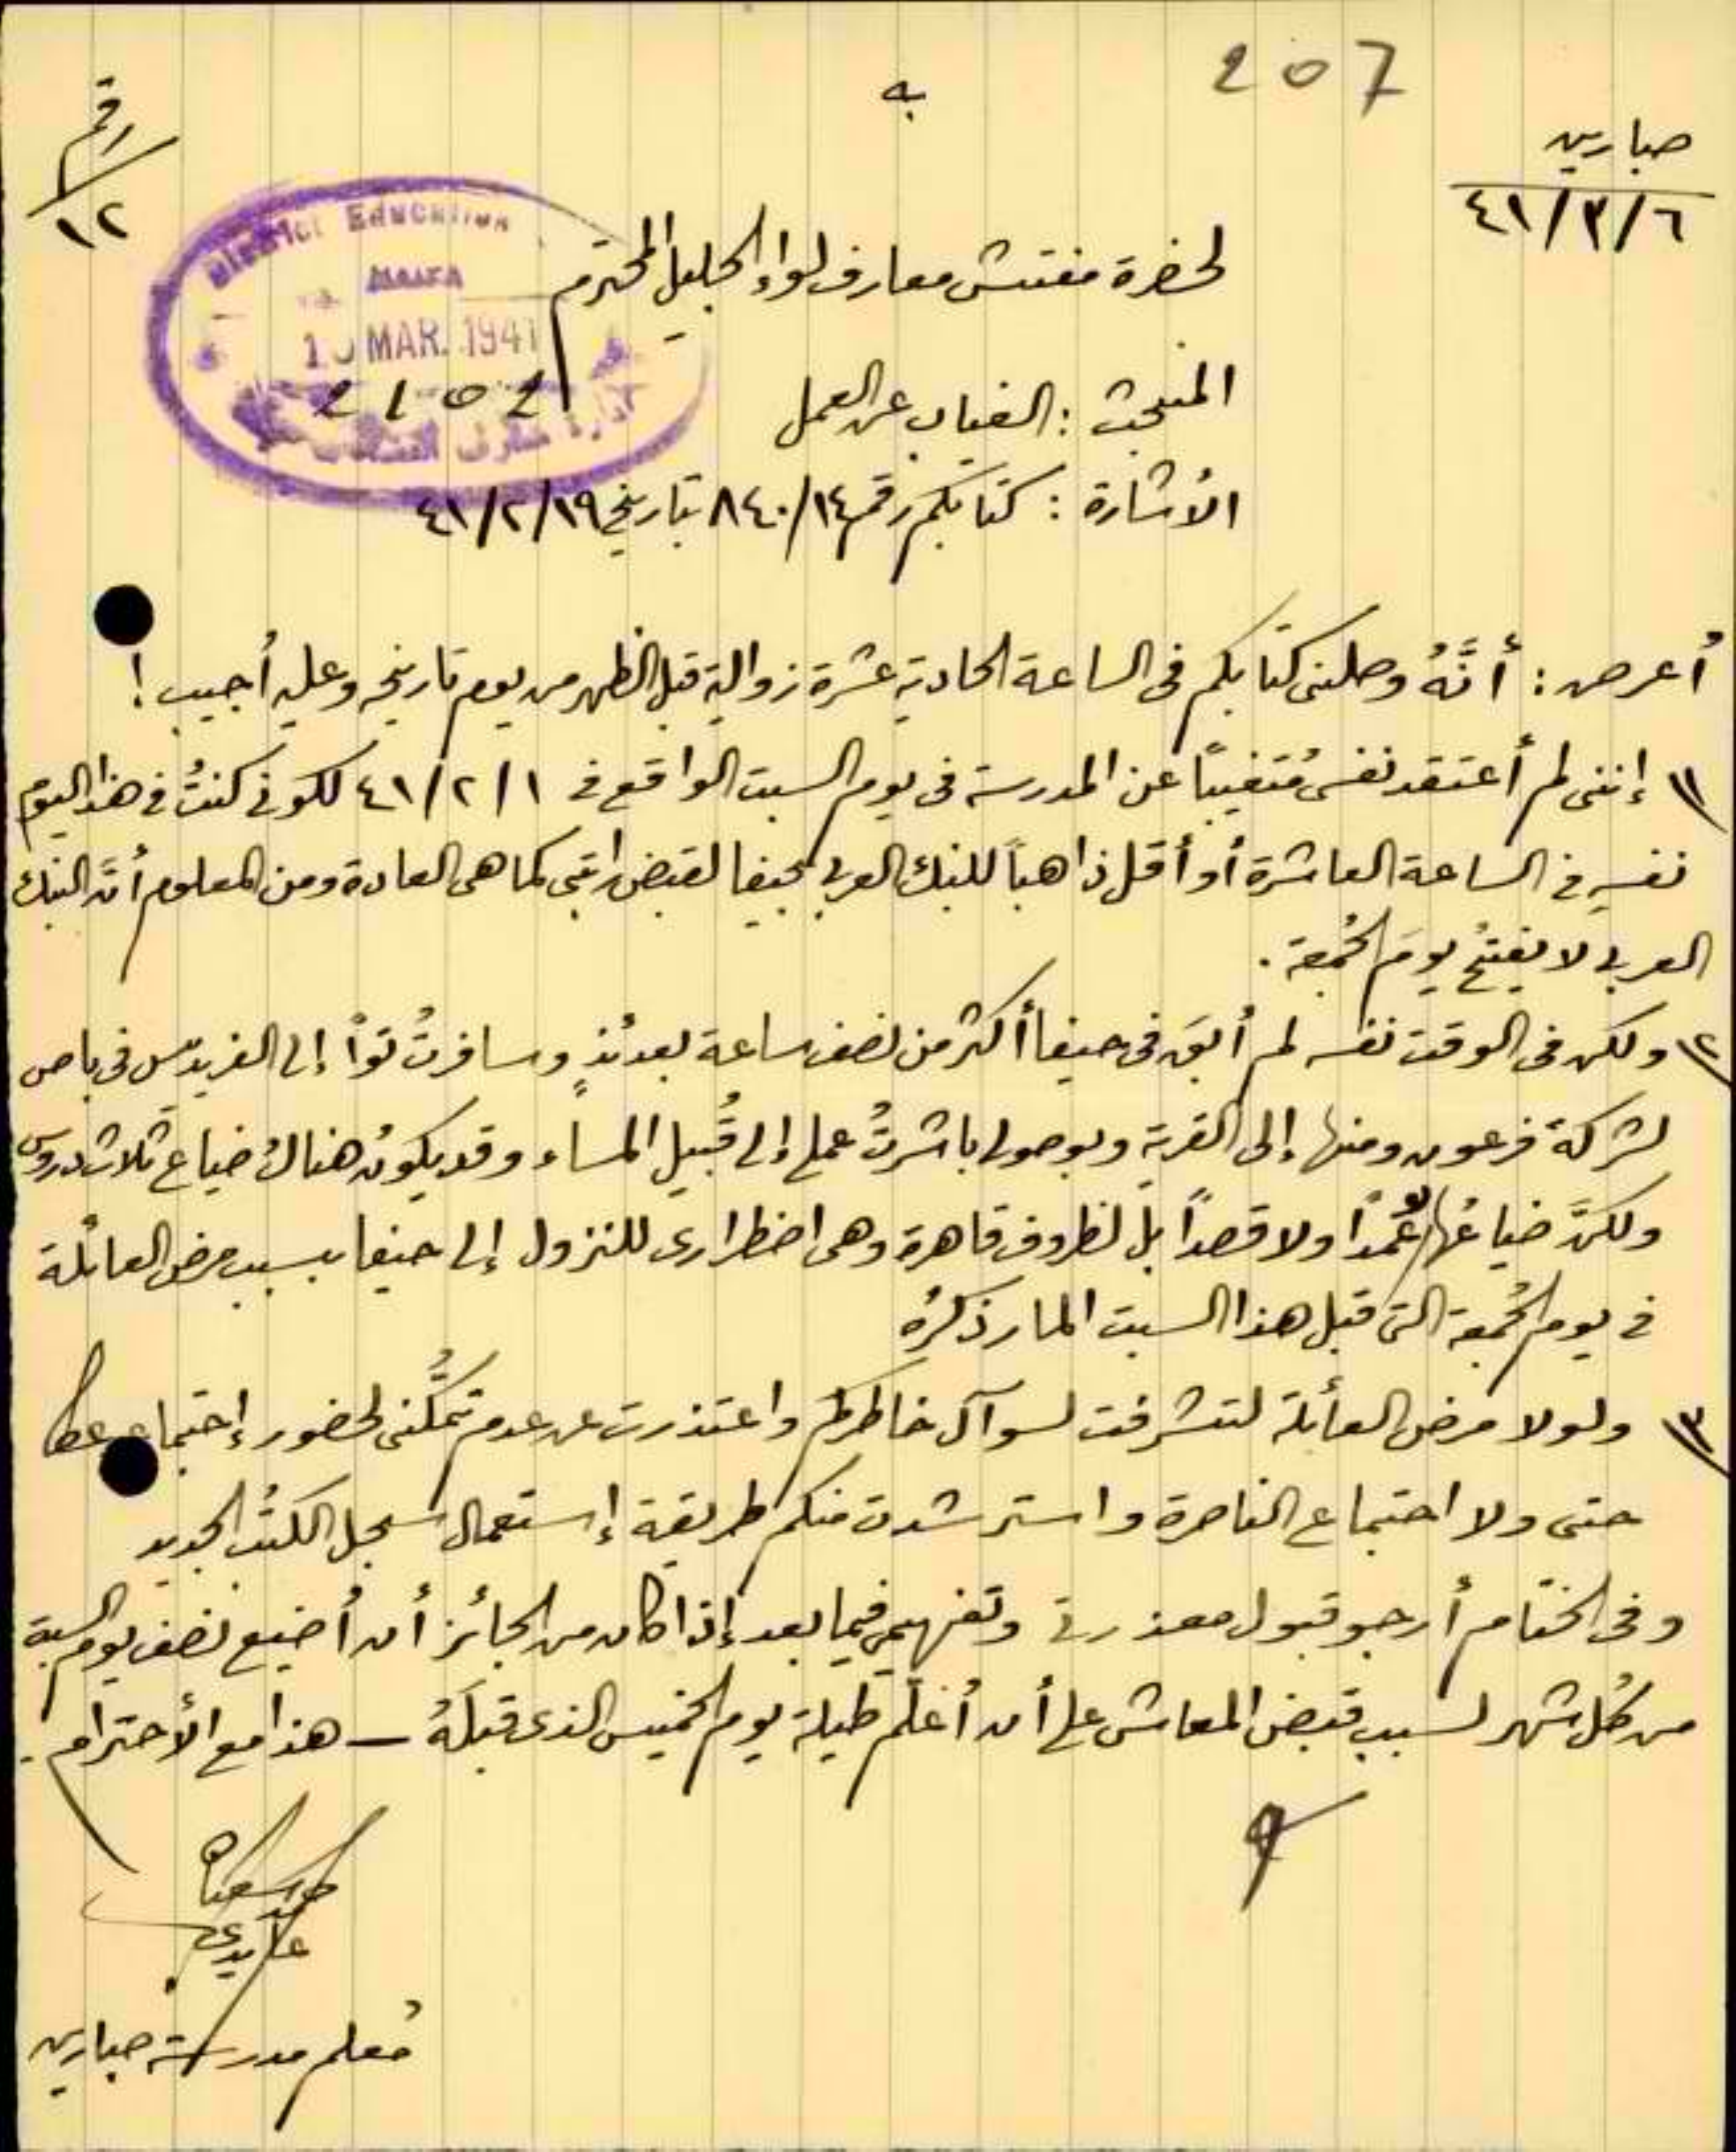 207
به
صبارين
٤١/٣/٦
رقم
١٢
District Education
HAIFA
MAR. 1941
2102
لحضرة مفتش معارف لواء الجليل المحترم
المبحث : الغياب عن العمل
الأشارة : كتابكم رقم ٨٤٠/١٤ بتاريخ ٤١/٢/١٩
أعرض : أنَّهُ وصلني كتابكم في الساعة الحادية عشرة زوالية قبل الظهر من يوم تاريخه وعليه أُجيب !
١) إنني لم أعتقد نفسي مُتغيباً عن المدرسة في يوم السبت الواقع في ٤١/٢/١ لكوني كنتُ في هذا اليوم
نفسه في الساعة العاشرة أو أقل ذاهباً للبنك العربي بحيفا لقبض راتبي كما هي العادة ومن المعلوم أنَّ البنك
العربي لا يفتحُ يومَ الجُمعة .
٢) ولكن في الوقت نفسه لم أبقَ في حيفا أكثر من نصف ساعة بعدئذٍ وسافرتُ تواً إلى الفريديس في باص
لشركة فرعون ومنها إلى القرية وبوصولي باشرتُ عملي إلى قُبيل المساء وقد يكونُ هناكَ ضياع ثلاث دروس
ولكنَّ ضياعُها لا عَمداً ولا قصداً بل لظروف قاهرة وهي اضطراري للنزول إلى حيفا بسبب مرض العائلة
في يوم الجُمعة التي قبل هذا السبت المار ذكرُه
٣) ولولا مرض العائلة لتشرفت لسوآل خاطركم واعتذرت عن عدم تمكُّني لحضور إجتماع عكا
حتى ولا اجتماع الناصرة واسترشدت منكم طريقة إستعمال سجل الكتُب الجديد
وفي الختام أرجو قبول معذرتي وتفهيمي فيما بعد إذا كان من الجائز أن أُضيع نصف يوم السبت
من كُل شهر لسبب قبض المعاش على أن أُعلّم طيلة يوم الخميس الذي قبلَهُ — هذا مع الأحترام .
مُعلم مدرسة صبارين